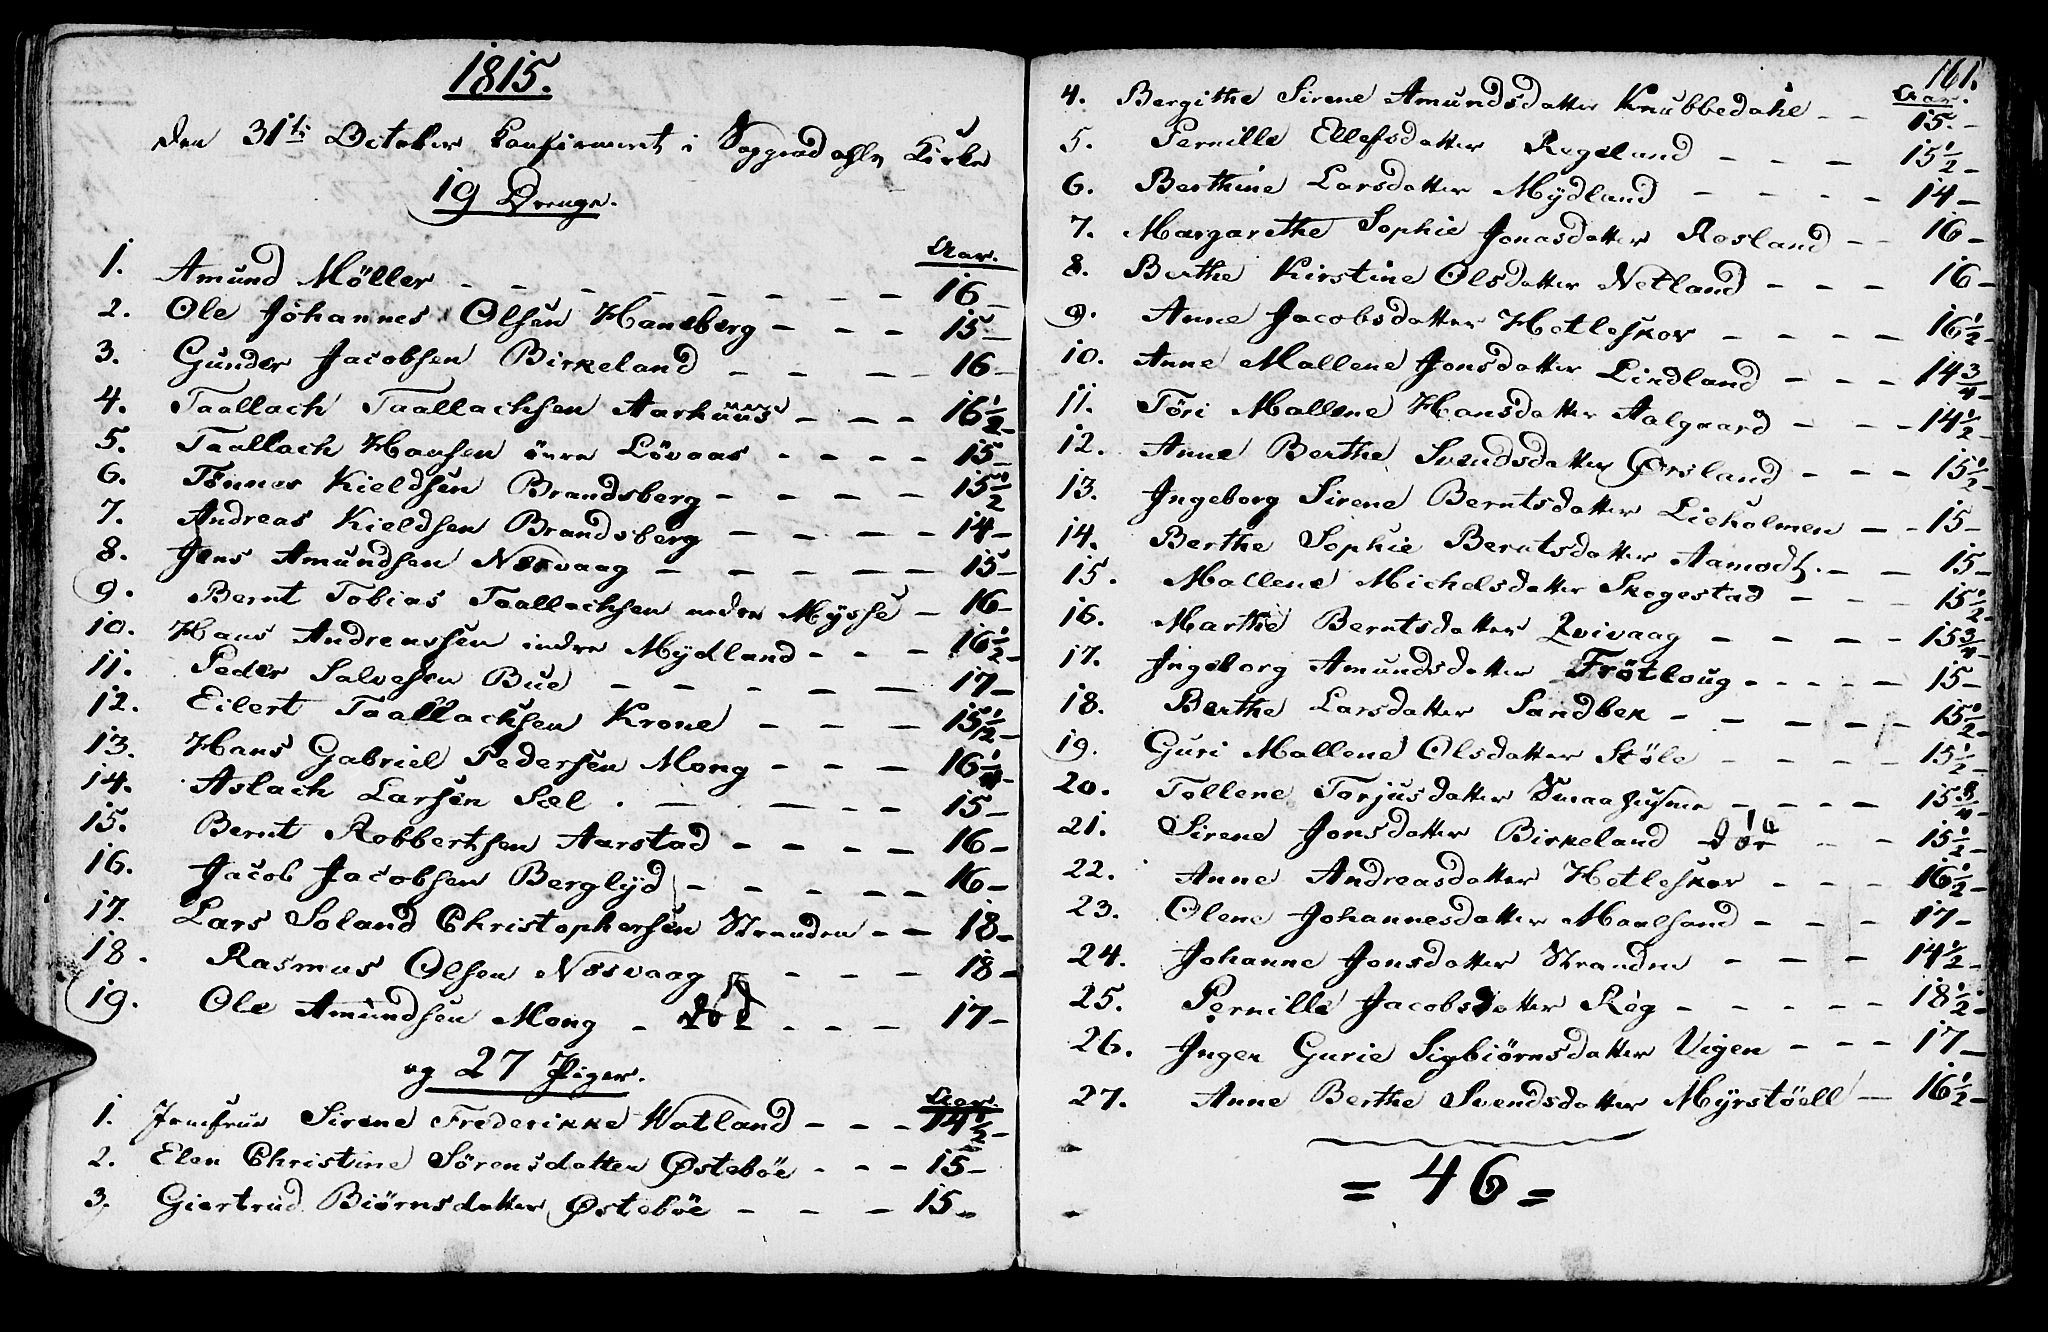 1815.
den 31te October Confirmeret i Soggendahls Kirke
19 Drenge.
Aar.
1. Amund Möller - - - - - - - - 16 -
2. Ole Johannes Olsen Haneberg - - - 15 -
3. Gunder Jacobsen Birkeland - - - - 16 -
4. Taallach Taallachsen Aarhuus - - - 16 1/2 -
5. Taallach Hansen övre Lövaas - - - - 15 -
6. Tönnes Kieldsen Brandsberg - - - - 15 1/2
7. Andreas Kieldsen Brandsberg - - - - 14 -
8. Jens Amundsen Nesvaag - - - - - 15 -
9. Bernt Tobias Taallachsen nedre Mysse - 16 -
10. Hans Andreassen indre Mydland - - - 16 1/2 -
11. Peder Salvesen Bue - - - - - 17 -
12. Eilert Taallachsen Krone - - - - 15 1/2 -
13. Hans Gabriel Pedersen Mong - - - 16 1/4 -
14. Aslach Larsen Sæl . - - - - 15 -
15. Bernt Robbertsen Aarstad - - - - 16 -
16. Jacob Jacobsen Berglyd - - - - - 16 -
17. Lars Soland Christophersen Stranden - - 18 -
18. Rasmus Olsen Nesvaag - - - - 18 -
19. Ole Amundsen Mong - död - - - 17 -
og 27 Piger.
Aar.
1. Jomfrue Sirene Frederikke Watland - - - 14 1/2 -
2. Elen Christine Sörensdatter Østeböe - - - 15 -
3. Giertrud Biörnsdatter Østeböe - - - 15 -
161.
Aar.
4. Bergithe Sirene Amundsdatter Knubbedahl - - 15. -
5. Pernille Ellefsdatter Regeland - - - 15 1/2 -
6. Berthine Larsdatter Mydland - - - - 14 -
7. Margarethe Sophie Jonasdatter Rosland - - 16 -
8. Berthe Kirstine Olsdatter Netland - - - 16 -
9. Anne Jacobsdatter Hetleskor - - - - 16 1/2 -
10. Anne Mallene Jonsdatter Lindland - - - 14 3/4 -
11. Töri Mallene Hansdatter Aalgaard - - - 14 1/2 -
12. Anne Berthe Svendsdatter Ørsland - - - 15 1/2 -
13. Ingeborg Sirene Berntsdatter Lieholmen - - 15 -
14. Berthe Sophie Berntsdatter Aamodt. - - 15 -
15. Mallene Michelsdatter Skogestad - - - 15 1/2 -
16. Marthe Berntsdatter Qvivaag - - - - 15 3/4 -
17. Ingeborg Amundsdatter Frötloug - - - - - 15 -
18. Berthe Larsdatter Sandbek - - - - - 15 1/2 -
19. Guri Mallene Olsdatter Stöle - - - - 15 1/2 -
20. Tollene Torjusdatter Smaahusene - - - - 15 3/4 -
21. Sirene Jonsdatter Birkeland - - - 15 1/2 -
22. Anne Andreasdatter Hetleskor - - - 16 1/2 -
23. Olene Johannesdatter Maalsand - - - 17 -
24. Johanne Jonsdatter Stranden - - - 14 1/2 -
25. Pernille Jacobsdatter Reg - - - - - 18 1/2 -
26. Inger Gurie Sigbiörnsdatter Vigen - - - 17 -
27. Anne Berthe Svendsdatter Myrstöell - 16 1/2 -
= 46 =